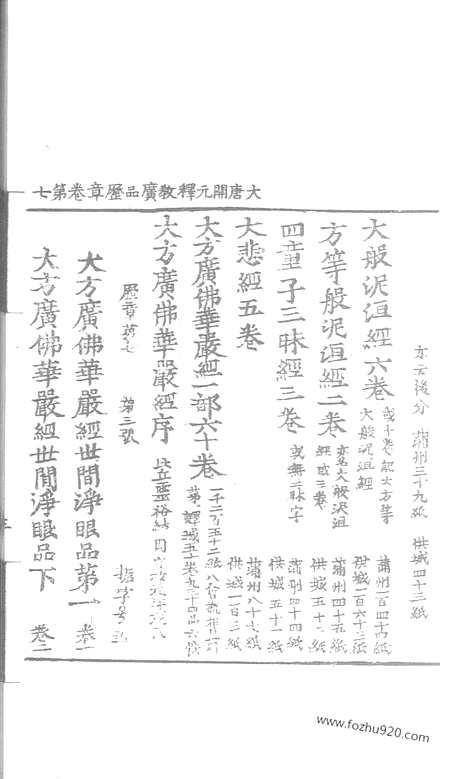 大唐開元釋教廣品歷章卷第七
亦云後分 蒲州三十九紙 供城四十三紙
大般泥洹經六卷 或十卷 大方等大般泥洹經 蒲州一百四十四紙 供城一百六十三紙
方等般泥洹經二卷 亦名大般泥洹經 或三卷 蒲州四十五紙 供城五十紙
四童子三昧經三卷 或無三昧字 蒲州四十四紙 供城五十一紙
大悲經五卷 蒲州八十七紙 供城一百三紙
大方廣佛華嚴經一部六十卷 一千二百五十二紙 第一譯 或五十卷
大方廣佛華嚴經序
歷章第七 第三張
大方廣佛華嚴經世間淨眼品第一 卷一
大方廣佛華嚴經世間淨眼品下 卷二
www.fozhu920.com